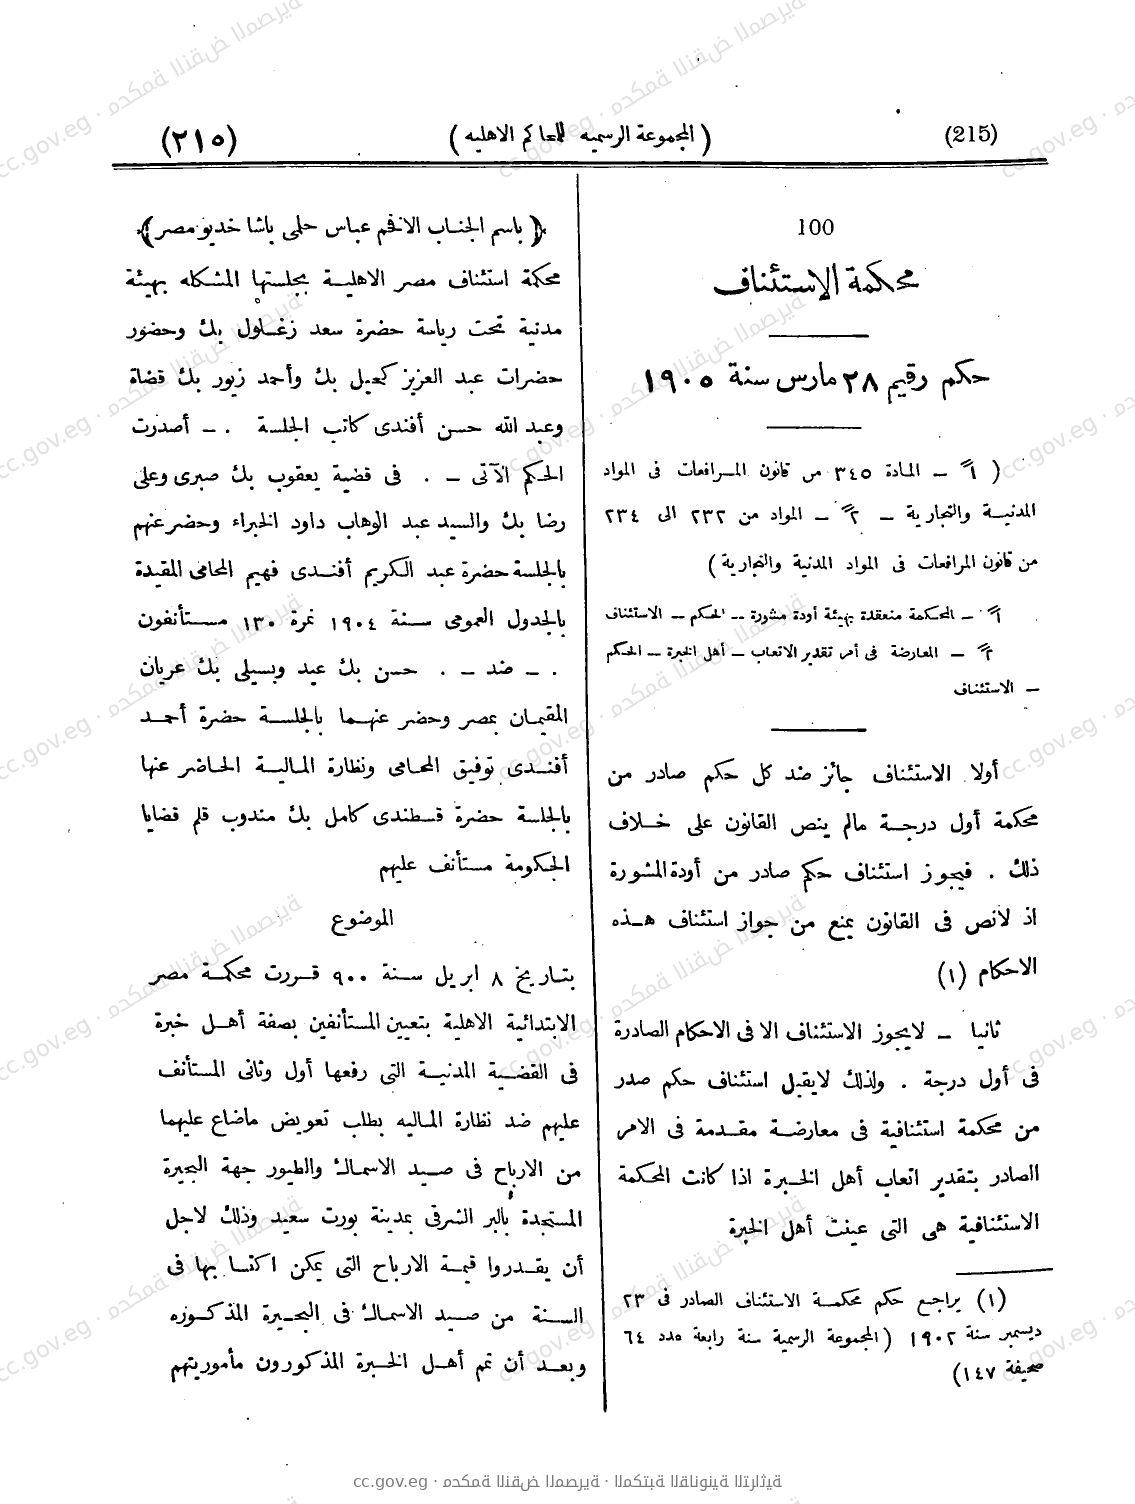 (215)
(المجموعة الرسميه للمحاكم الاهليه)
(٢١٥)
100
محكمة الاستئناف
حكم رقيم ٢٨ مارس سنة ١٩٠٥
( ١ً – المادة ٣٤٥ من قانون المرافعات فى المواد
المدنيــة والتجارية – ٢ً – المواد من ٢٣٢ الى ٢٣٤
من قانون المرافعات فى المواد المدنية والتجارية )
١ً – المحكمة منعقدة بهيئة أودة مشورة – الحكم – الاستئناف
٢ً – المعارضة فى أمر تقدير الاتعاب – أهل الخبرة – الحكم
– الاستئناف
أولا الاستئناف جائز ضد كل حكم صادر من
محكمة أول درجة مالم ينص القانون على خلاف
ذلك . فيجوز استئناف حكم صادر من أودة المشورة
اذ لانص فى القانون يمنع من جواز استئناف هذه
الاحكام (١)
ثانيا – لايجوز الاستئناف الا فى الاحكام الصادرة
فى أول درجة . ولذلك لايقبل استئناف حكم صدر
من محكمة استئنافية فى معارضة مقدمة فى الامر
الصادر بتقدير اتعاب أهل الخبرة اذا كانت المحكمة
الاستئنافية هى التى عينت أهل الخبرة
(١) يراجع حكم محكمة الاستئناف الصادر فى ٢٣
ديسمبر سنة ١٩٠٢ (المجموعة الرسمية سنة رابعة عدد ٦٤
صحيفة ١٤٧)
﴿ باسم الجناب الافخم عباس حلمى باشا خديو مصر ﴾
محكمة استئناف مصر الاهلية بجلستها المشكله بهيئة
مدنية تحت رياسة حضرة سعد زغلول بك وحضور
حضرات عبد العزيز كحيل بك وأحمد زيور بك قضاة
وعبد الله حسن أفندى كاتب الجلسة . – أصدرت
الحكم الآتى – . فى قضية يعقوب بك صبرى وعلى
رضا بك والسيد عبد الوهاب داود الخبراء وحضر عنهم
بالجلسة حضرة عبد الكريم أفندى فهيم المحامى المقيدة
بالجدول العمومى سنة ١٩٠٤ نمرة ١٣٠ مستأنفون
. – ضد – . حسن بك عيد وبسيلى بك عريان
المقيمان بمصر وحضر عنهما بالجلسة حضرة أحمد
أفندى توفيق المحامى ونظارة المالية الحاضر عنها
بالجلسة حضرة قسطندى كامل بك مندوب قلم قضايا
الحكومة مستأنف عليهم
الموضوع
بتاريخ ٨ ابريل سنة ٩٠٠ قررت محكمة مصر
الابتدائية الاهلية بتعيين المستأنفين بصفة أهل خبرة
فى القضية المدنية التى رفعها أول وثانى المستأنف
عليهم ضد نظارة الماليه بطلب تعويض ماضاع عليهما
من الارباح فى صيد الاسماك والطيور جهة البحيرة
المستجدة بالبر الشرقى بمدينة بورت سعيد وذلك لاجل
أن يقدروا قيمة الارباح التى يمكن اكتسابها فى
السنة من صيد الاسماك فى البحيرة المذكوره
وبعد أن تمم أهل الخبرة المذكورون مأموريتهم
cc.gov.eg · محكمة النقض المصرية · المكتبة القانونية التراثية